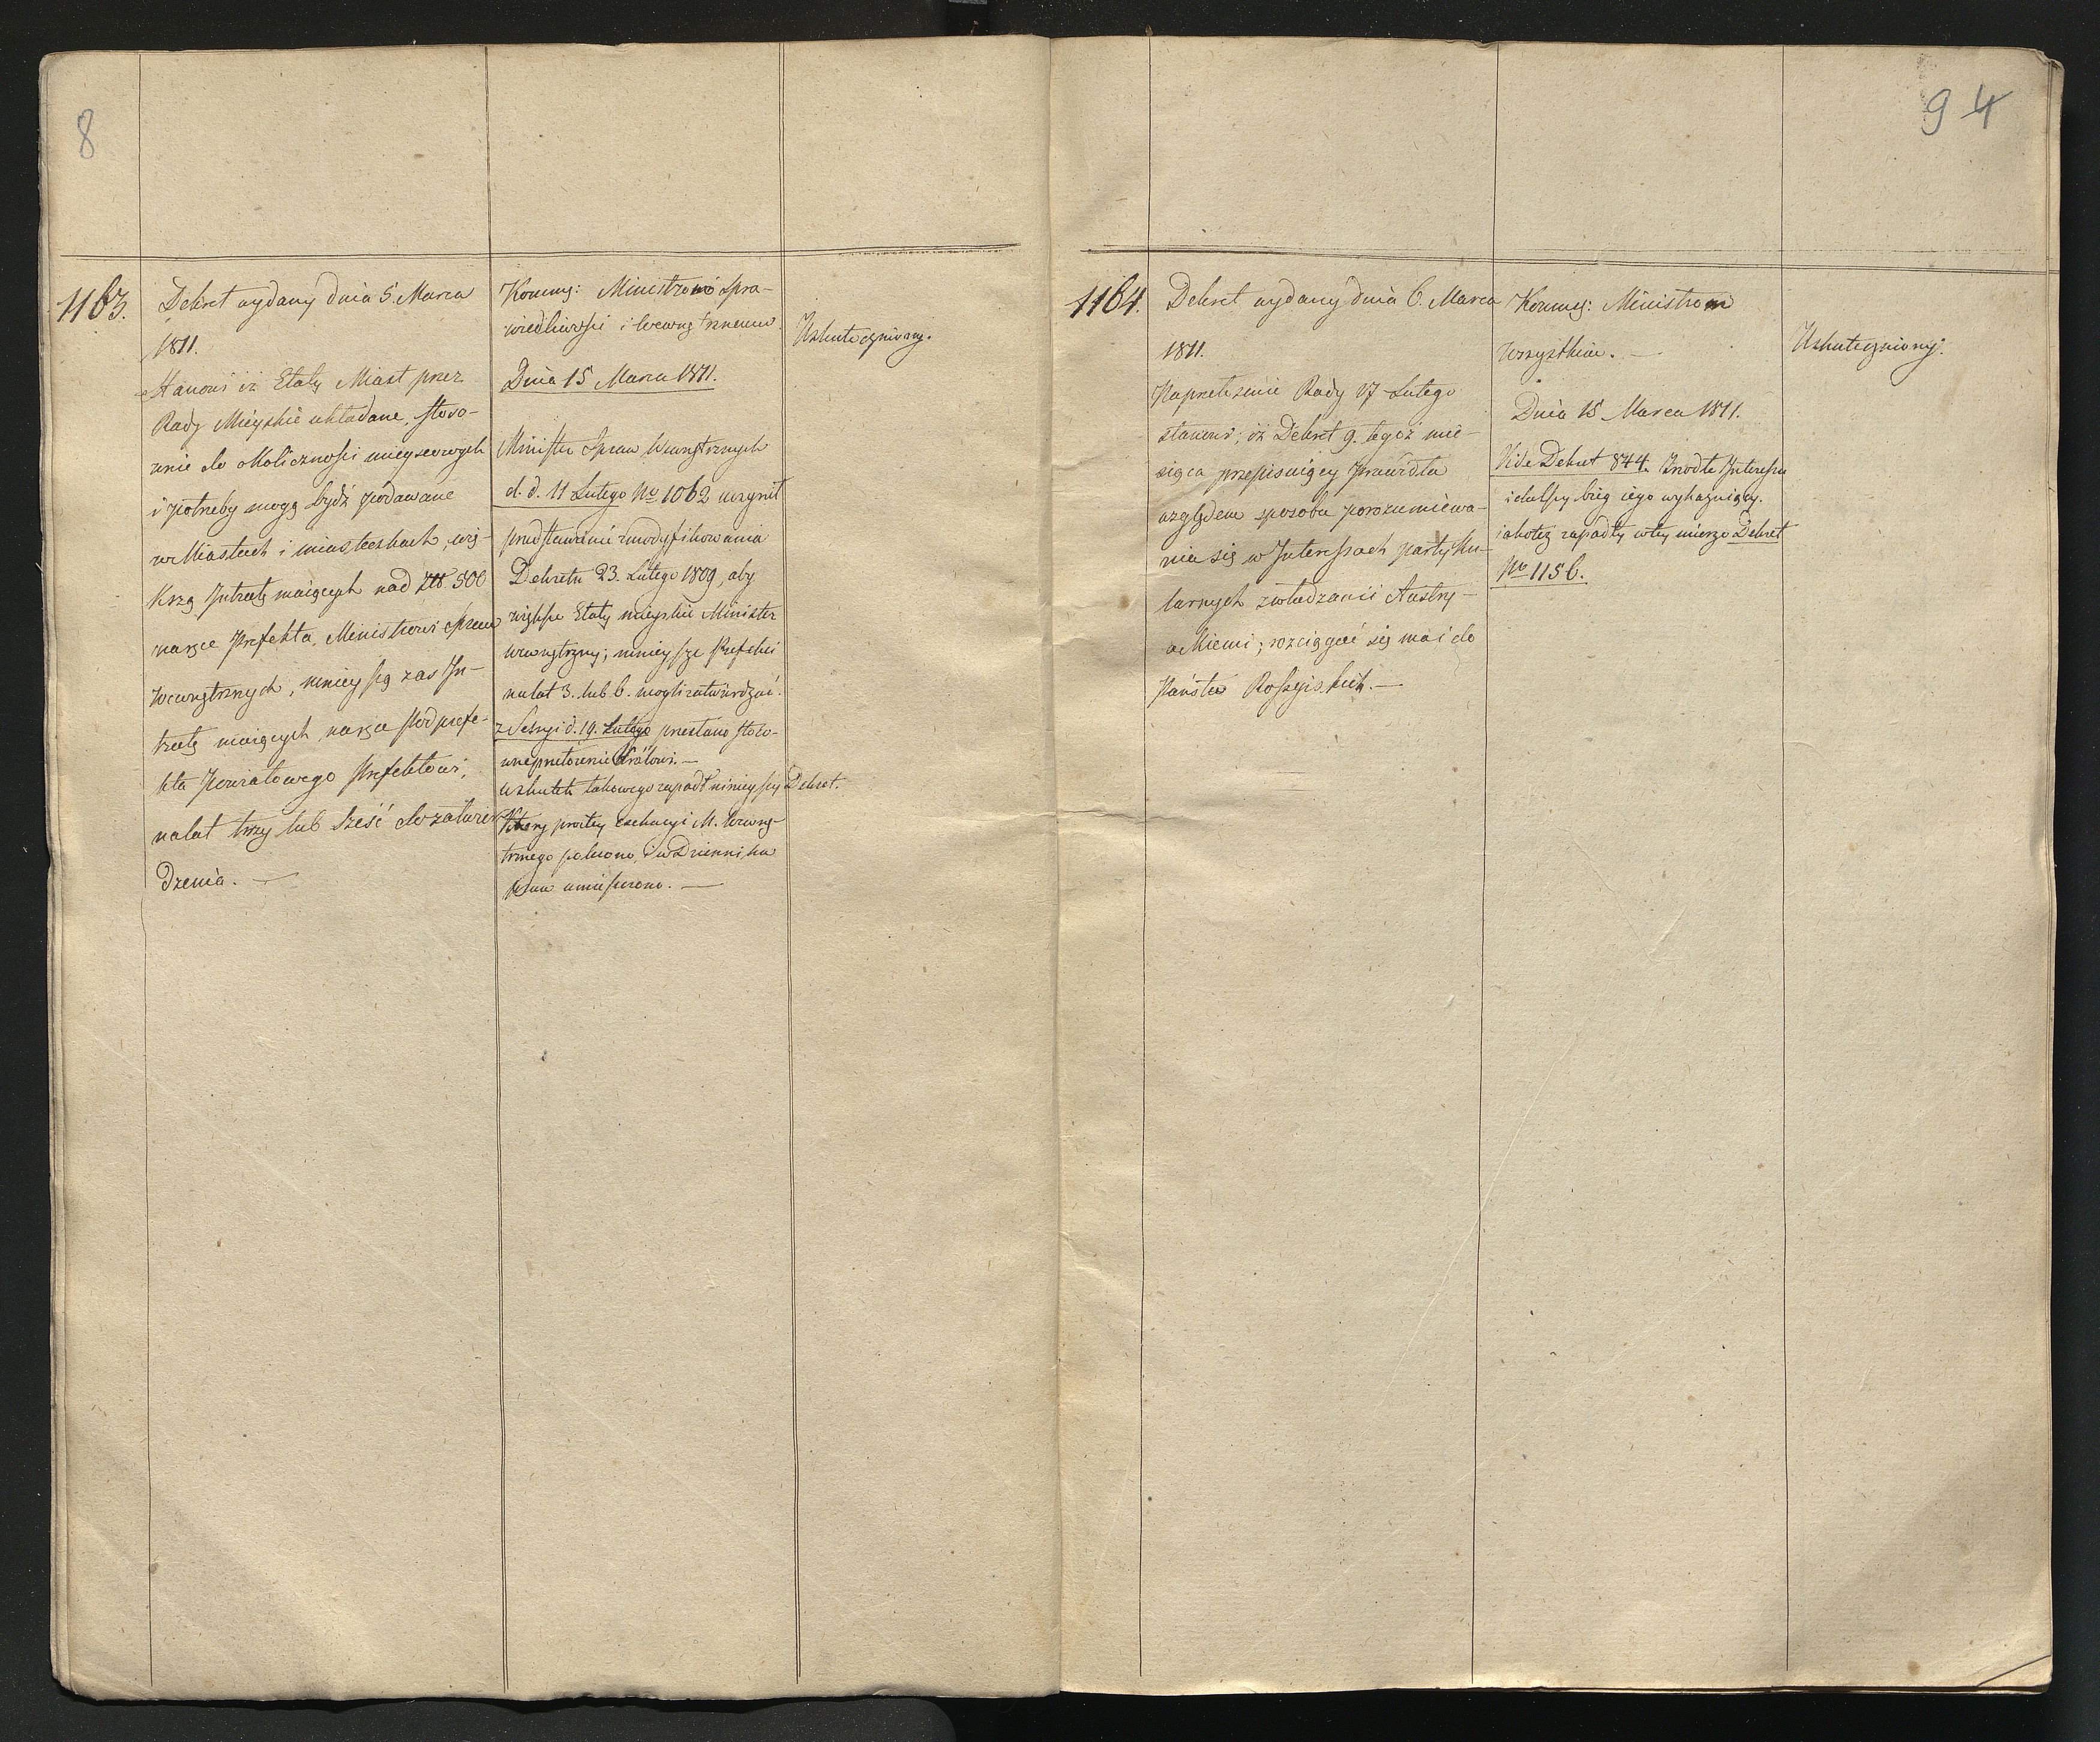 8
1163.
Dekret wydany dnia 5. Marca
1811.
Stanowi iż Etaty Miast przez
Rady Mieyskie układane, stoso-
wnie do okoliczności mieyscowych
i potrzeby mogą bydź podawane
w Miastach i miasteczkach, wię-
kszą Intratę maiących nad 500
przez Prefekta, Ministrowi Spraw
Wewnętrznych, mnieyszą zaś In-
tratę maiących przez Podprefe-
kta Powiatowego Prefektowi,
na lat trzy lub Sześć do zatwier-
dzenia. —
Kommu: Ministrowi Spra-
wiedliwości i Wewnętrznemu
Dnia 15 Marca 1811.
Minister Spraw Wewnętrznych
d. d. 11 Lutego No 1062 uczynił
przedstawienie zmodyfikowania
Dekretu 23. Lutego 1809, aby
większe Etaty mieyskie Minister
Wewnętrzny, mnieysze Prefekci
na lat 3. lub 6. mogli zatwierdzać.
z Sessyi d. 19. Lutego przesłano stoso-
wne przełożenie Królowi. —
w skutek takowego zapadł ninieyszy Dekret.
Który przy tey exekucyi M. Wewnę-
trznego polecono, i w Dzienniku
Praw umieszczono. —
Uskuteczniony.
94
1164.
Dekret wydany dnia 6. Marca
1811.
Na przełożenie Rady 17 Lutego
stanowi; iż Dekret 9. tegoż mie-
siąca przepisuiący prawidła
względem sposobu porozumiewa-
nia się w Interessach partyku-
larnych z władzami Austry-
ackiemi; rozciągać się ma i do
Państw Rossyiskich. —
Kommu: Ministrom
Wszystkim. —
Dnia 15 Marca 1811.
Vide Dekret 844. źrodło Interessu
i dalszy bieg iego wykazuiący.
iakoteż zapadły w tey mierze Dekret
No 1156.
Uskuteczniony.